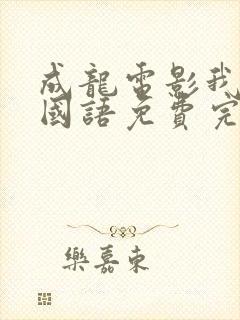 成龍電影我
國語免費完
樂嘉東